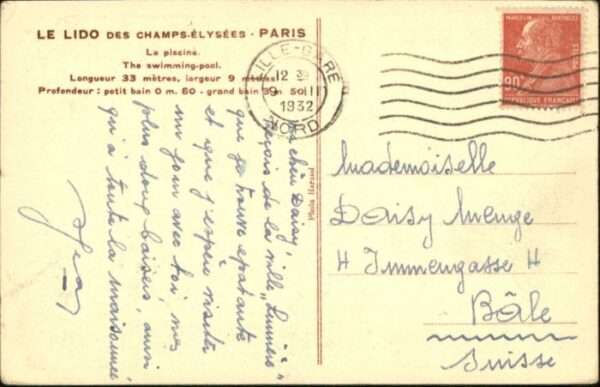 LE LIDO DES CHAMPS-ÉLYSÉES - PARIS
La piscine.
The swimming-pool.
Longueur 33 mètres, largeur 9 mètres
Profondeur : petit bain 0 m. 60 - grand bain 3 m 50
LILLE-GARE
12
9 III
1932
NORD
MARCELIN BERTHELOT
90c
RÉPUBLIQUE FRANÇAISE
chère Daisy!
reçois de la ville
que je trouve epatante
et que j'espère visiter
un jour avec toi mes
plus doux baisers, ainsi
qu'à toute la maisonnée
Photo
Mademoiselle
Daisy Menge
4 Immengasse 4
Bâle
Suisse